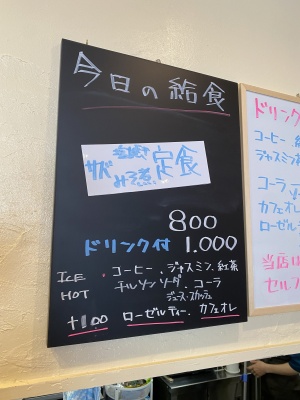 今日の給食
サバ 塩焼き 定食
みそ煮
800
ドリンク付 1.000
ICE ・コーヒー、ジャスミン、紅茶
HOT チルソンソーダ、コーラ
ジュース・スカッシュ
+100 ローゼルティー、カフェオレ
ドリンク
コーヒー、
ジャスミン
コーラ
カフェオレ
ローゼル
当店は
セルフ